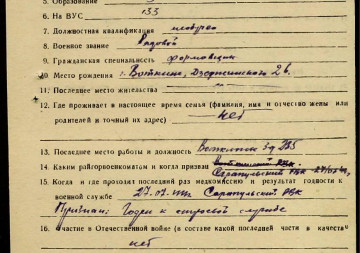 5. Образование
6. На ВУС 133
7. Должностная квалификация
8. Военное звание Рядовой
9. Гражданская специальность формовщик
10. Место рождения г. Воткинск, Дзержинского 26
11. Последнее место жительства
12. Где проживает в настоящее время семья (фамилия, имя и отчество жены или
родителей и точный их адрес) нет
13. Последнее место работы и должность
14. Каким райгорвоенкоматом и когда призван
Сарапульский РВК
15. Когда и где проходил последний раз медкомиссию и результат годности к
военной службе Сарапульский РВК
Признан: Годен к строевой службе
16. Участие в Отечественной войне (в составе какой последней части и качества
нет